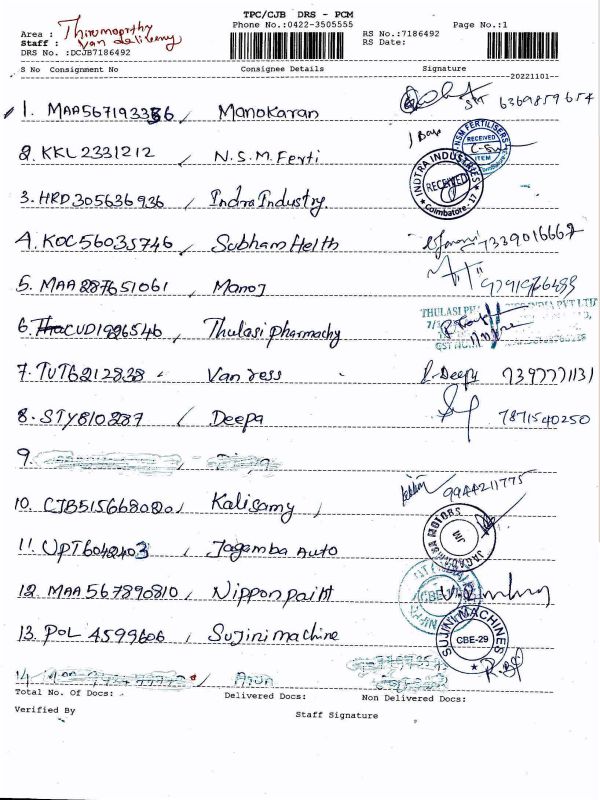 TPC/CJB DRS - PCM
Area : Thirumoorthy Phone No.:0422-3505555 RS No.:7186492 Page No.:1
Staff : Van delivery RS Date:
DRS No. :DCJB7186492
S No Consignment No Consignee Details Signature
20221101
1. MAA567193336 Manokaran 6369859654
2. KKL2331212 N.S.M. Ferti
NSM FERTILISERS RECEIVED ITEM
3. HRD305636936 Indra Industry.
INDTRA INDUSTRIES RECEIVED Coimbatore - 17
4. KOC56035746 Subham Helth 7339016662
5. MAA887651061 Manoj
6. CUD1926546 Thulasi pharmachy
THULASI PH INDIA PVT LTD
GST NO
7. TUT6212838 Van ress R-Deepy
8. STY810287 Deepa 7871540250
9.
10. CJB515668080 Kalisamy 9944211775
11. UPT6042403 Jagamba Auto
JAGADAMBA MOTORS
12. MAA567890810 Nippon paint
CBE
13. POL 4599606 Sujini machine
SUJINI MACHINES CBE-29
14. Arun
Total No. Of Docs: Delivered Docs: Non Delivered Docs:
Verified By Staff Signature